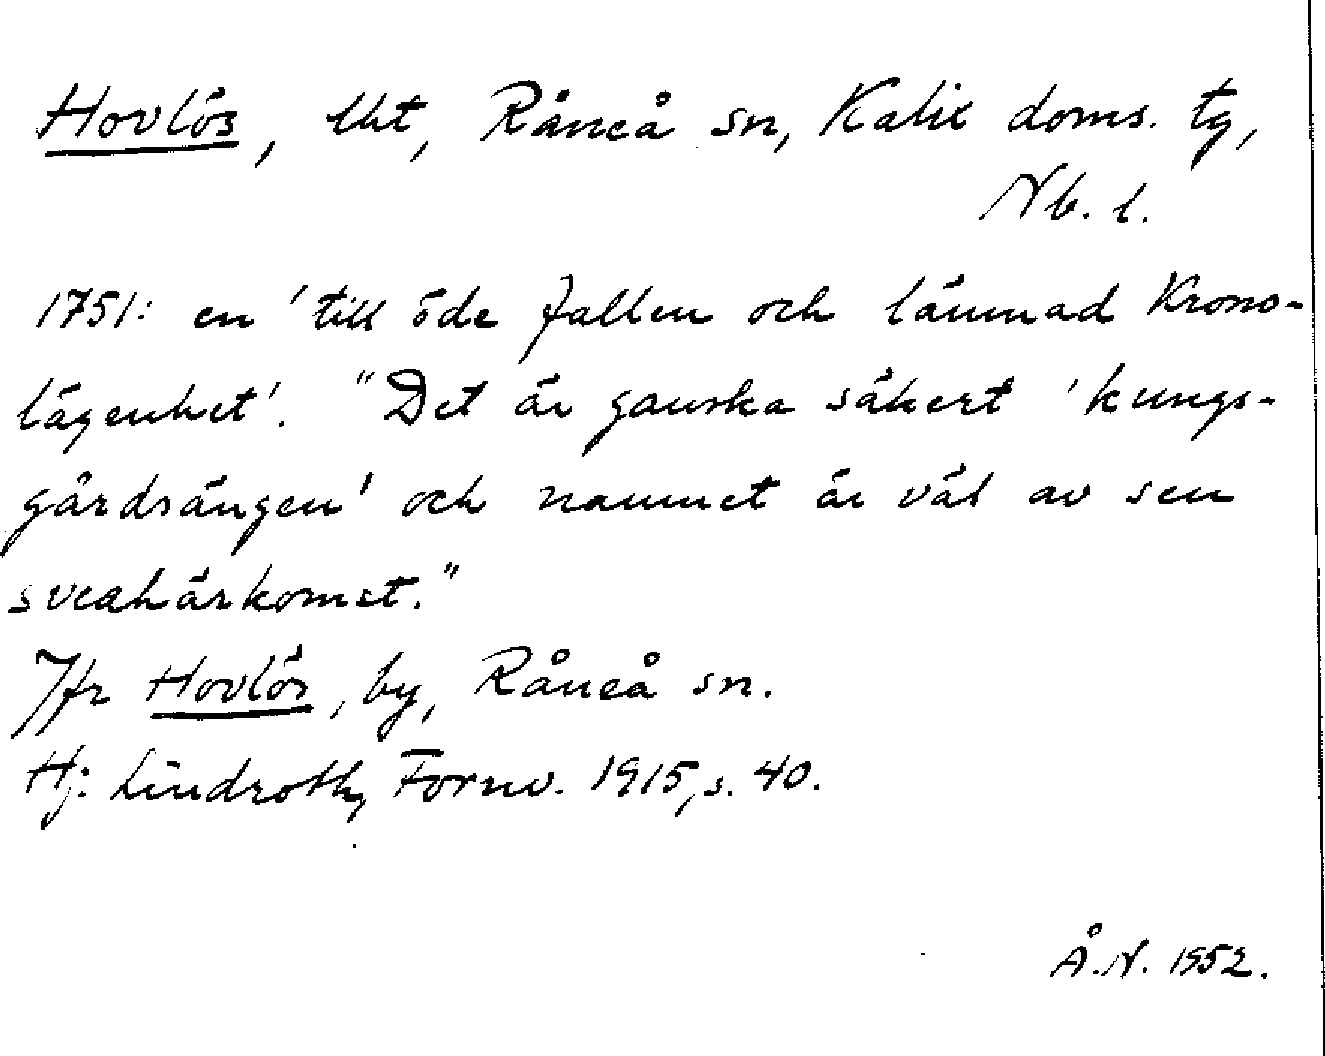 Hovlös, lht, Råneå sn, Kalix doms. tg,
Nb. l.
1751: en 'till öde fallen och lämnad Krono-
lägenhet'. "Det är ganska säkert 'kungs-
gårdsängen' och namnet är väl av sen
sveahärkomst."
Jfr Hovlös, by, Råneå sn.
Hj. Lindroth, Fornv. 1915, s. 40.
Å.N. 1952.